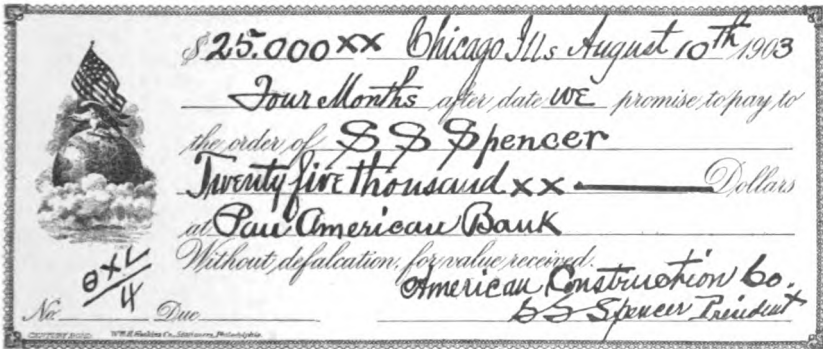 $ 25.000 xx Chicago Ills August 10th 1903
Four Months after date WE promise to pay to
the order of S S Spencer
Twenty five thousand xx Dollars
at Pan American Bank
Without defalcation, for value received.
American Construction Co.
No. Due S S Spencer President
CENTURY BOND. Wm. H. Hoskins Co., Stationers, Philadelphia.